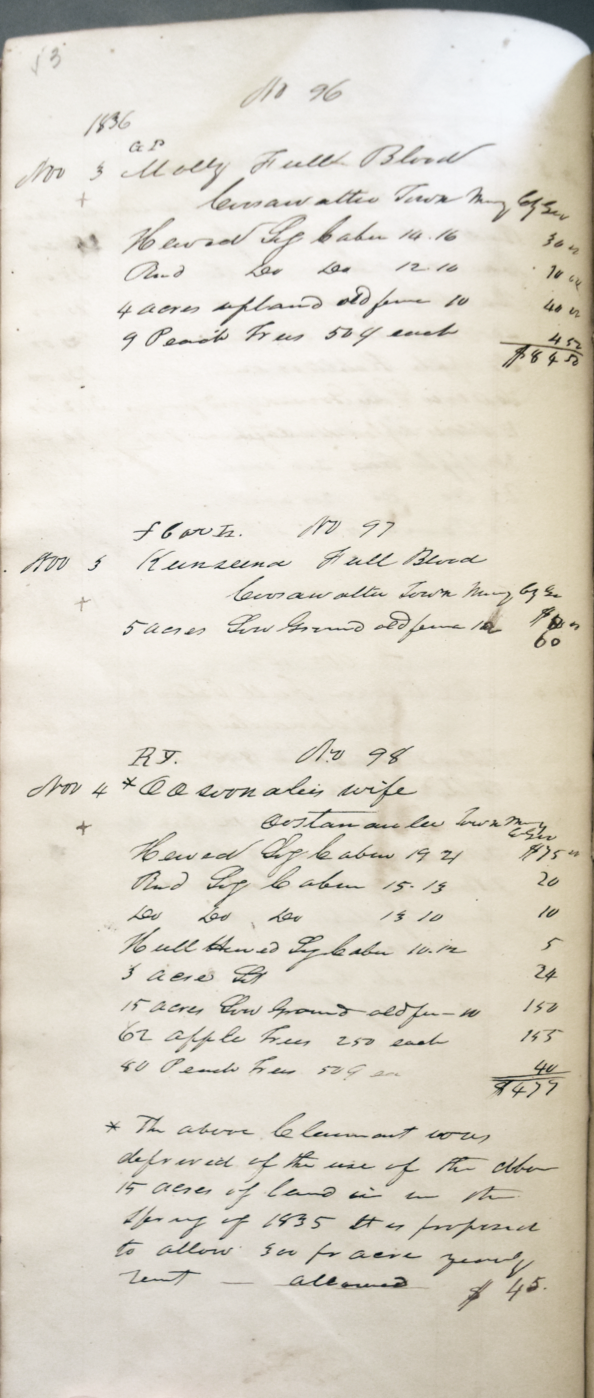 53
No 96
1836
G P
Nov 3 Molly Full Blood
+ Coosawattee Town Mury Cty Geo
Hewed Log Cabin 14.16 30 00
Rnd Do Do 12.10 10 00
4 acres upland old fence 10 40 00
9 Peach Trees 50¢ each 4 50
$84 50
No 97
Nov 3 Kunseena Full Blood
+ Coosawattee Town Mury Cty Geo
5 acres Low Ground old fence 12
60
R T. No 98
Nov 4 * wife
+ Oostanaulee Town
Hewed Log Cabin 19 21 $75 00
Rnd Log Cabin 15.13 20
Do Do Do 13 10 10
Hull Hewed Log Cabin 10.12 5
3 acre Lot 24
15 acres Low Ground old fen 10 150
62 apple Trees 250 each 155
80 Peach Trees 50¢ ea 40
$477
* The above Claimant was
deprived of the use of the above
15 acres of land in the
Spring of 1835 It is proposed
to allow 300 pr acre yearly
rent — allowed $ 45.